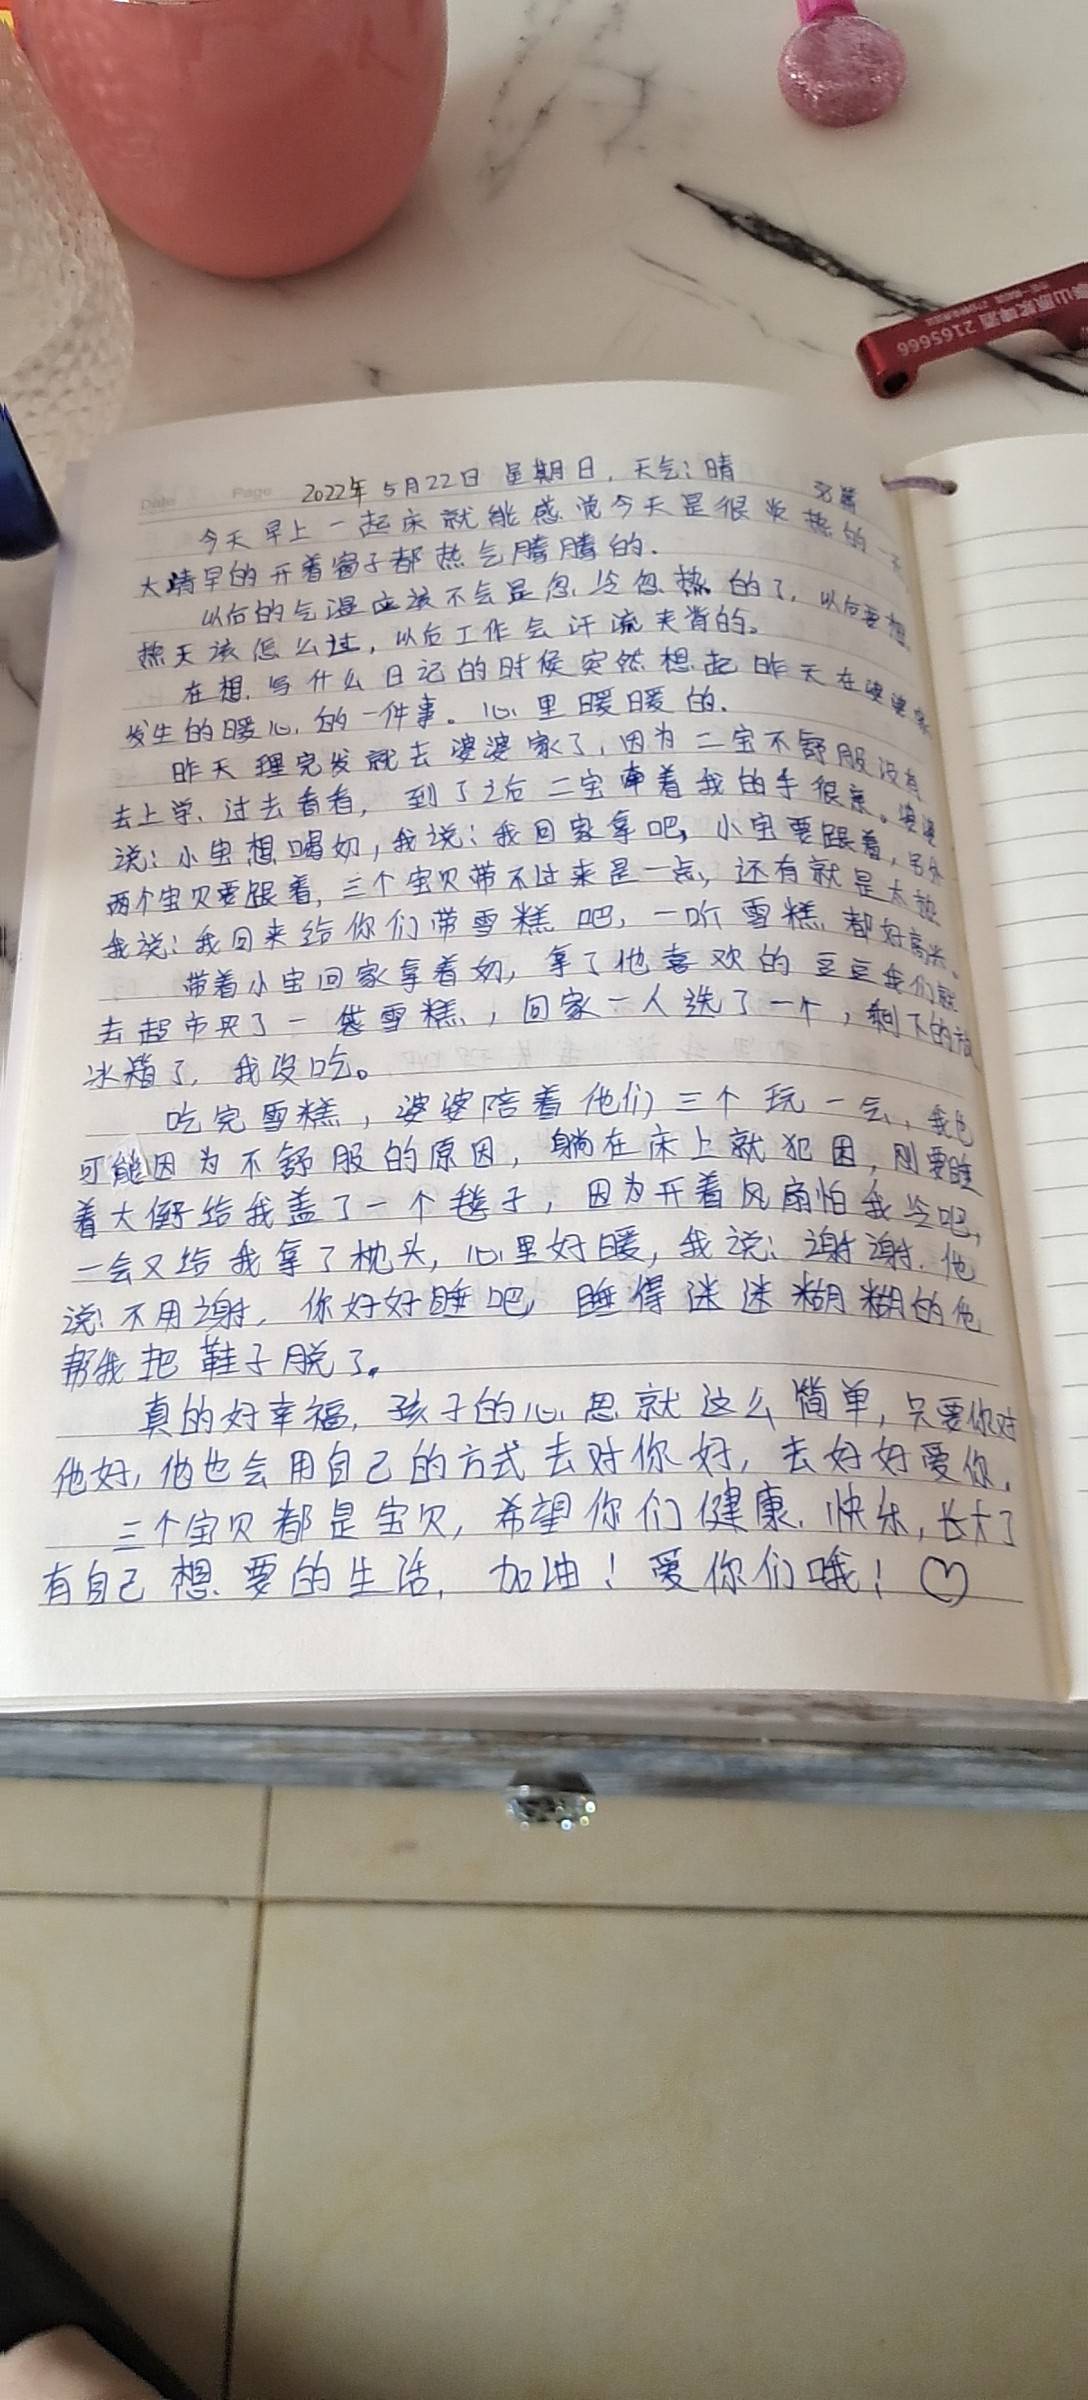 泰山原浆啤酒 2165666
Date Page 2022年 5月22日 星期日，天气：晴
今天早上一起床就能感觉今天是很炎热的一天
大晴早的开着窗子都热气腾腾的.
以后的气温应该不会是忽冷忽热的了，以后要想
热天该怎么过，以后工作会汗流夹背的。
在想写什么日记的时候突然想起昨天在婆婆家
发生的暖心的一件事。心里暖暖的.
昨天理完发就去婆婆家了，因为二宝不舒服没有
去上学、过去看看，到了之后二宝牵着我的手很亲。婆婆
说：小宝想喝奶，我说：我回家拿吧，小宝要跟着，另外
两个宝贝要跟着，三个宝贝带不过来是一点，还有就是太热
我说：我回来给你们带雪糕吧，一听雪糕都好高兴。
带着小宝回家拿着奶，拿了他喜欢的豆豆我们就
去超市买了一袋雪糕，回家一人选了一个，剩下的放
冰箱了，我没吃。
吃完雪糕，婆婆陪着他们三个玩一会，我也
可能因为不舒服的原因，躺在床上就犯困，刚要睡
着大侄子给我盖了一个毯子，因为开着风扇怕我冷吧，
一会又给我拿了枕头，心里好暖，我说：谢谢，他
说：不用谢，你好好睡吧，睡得迷迷糊糊的他
帮我把鞋子脱了。
真的好幸福，孩子的心思就这么简单，只要你对
他好，他也会用自己的方式去对你好，去好好爱你，
三个宝贝都是宝贝，希望你们健康、快乐，长大了
有自己想要的生活，加油！爱你们哦！♡